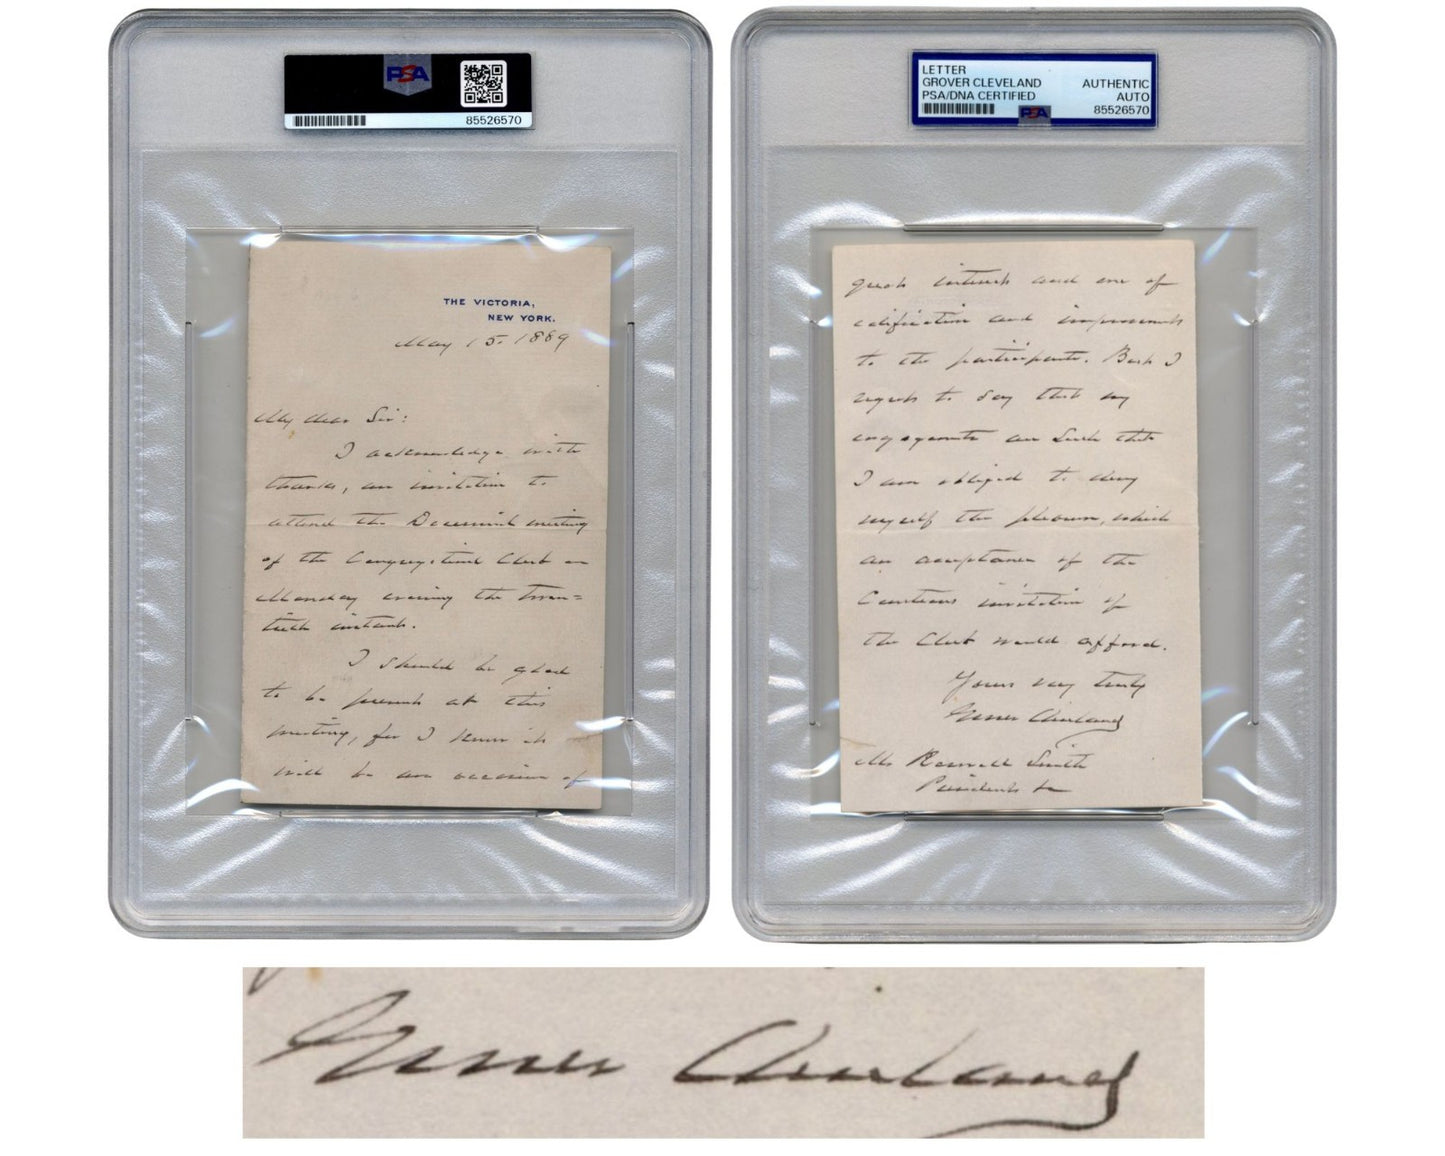 PSA
85526570
LETTER
GROVER CLEVELAND
PSA/DNA CERTIFIED
AUTHENTIC
AUTO
85526570
PSA
THE VICTORIA,
NEW YORK.
May 15. 1889
My dear Sir:
I acknowledge with
thanks, an invitation to
attend the meeting
of the Congregational Club on
Monday evening the twen=
tieth instant.
I should be glad
to be present at this
meeting, for I know it
will be an occasion of
great interest and one of
edification and improvement
to the participants. But I
regret to say that my
engagements are such that
I am obliged to deny
myself the pleasure, which
an acceptance of the
Courteous invitation of
the Club would afford.
Yours very truly
Grover Cleveland
Mr Roswell Smith
President &c
Grover Cleveland